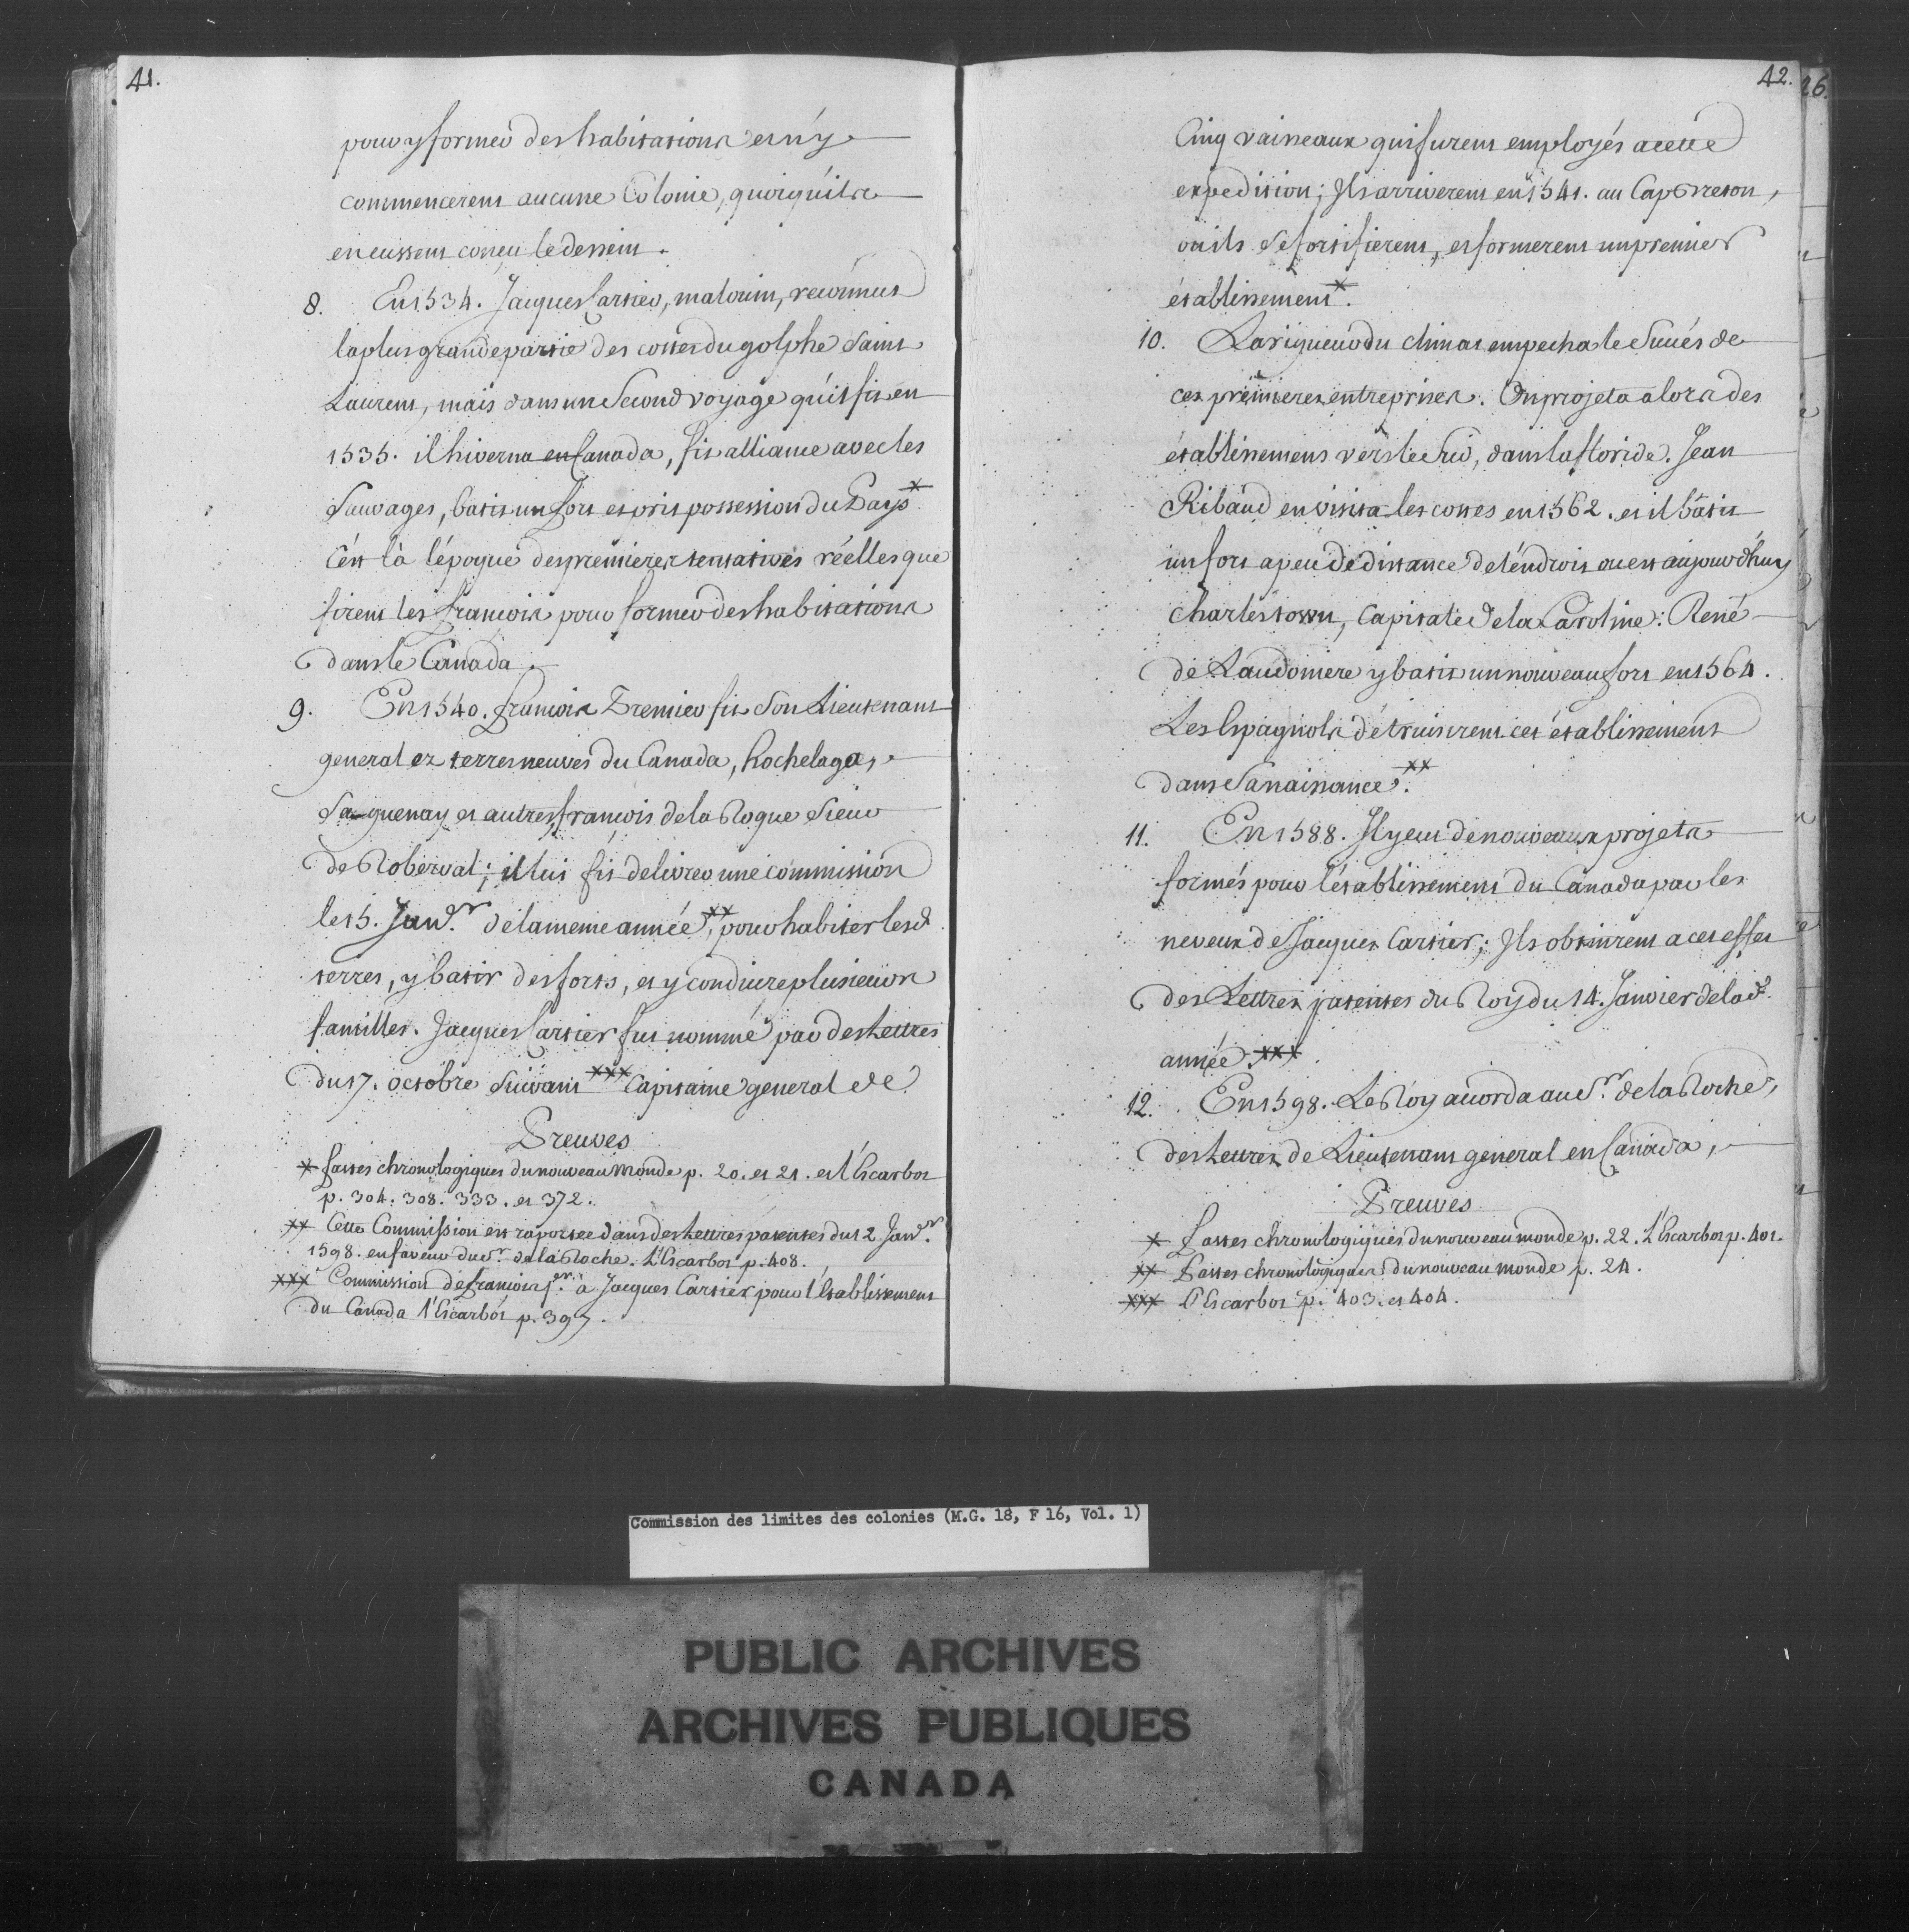 41.
pour y former des habitations et n'y
commencerent aucune Colonie, quoiqu'ils
en eussent conçu le dessein.
8. En 1534. Jacques Cartier, malouin, reconnut
la plus grande partie des costes du golphe Saint
Laurent, mais dans un Second voyage qu'il fit en
1535. il hiverna en Canada, fit alliance avec les
Sauvages, batit un fort et prit possession du Pays*.
C'est là l'époque des premieres tentatives réelles que
firent les francois pour former des habitations
dans le Canada.
9. En 1540. francois Premier fit Son Lieutenant
general ez terres neuves du Canada, hochelaga,
Saguenay et autres, francois de la Roque Sieur
de Roberval; il lui fit delivrer une commission
le 15. Janv.r de la meme année **, pour habiter lesd.
terres, y batir des forts, et y conduire plusieurs
familles. Jacques Cartier fut nommé par des Lettres
du 17. octobre Suivant *** Capitaine general de
Preuves
* fastes chronologiques du nouveau monde p. 20. et 21. et l'Escarbot
p. 304. 308. 333. et 372.
** Cette Commission est raportée dans des Lettres patentes du 12 Janv.r
1598. en faveur du S.r de la Roche. L'Escarbot p. 408.
*** Commission de francois p.er a Jacques Cartier pour l'établissement
du Canada l'Escarbot p. 397.
42. 26.
Cinq vaisseaux qui furent employés a cette
expedition; Ils arriverent en 1541. au Cap Breton,
ou ils Se fortifierent, et formerent un premier
établissement*.
10. La rigueur du climat empecha le Succés de
ces premieres entreprises. On projeta alors des
établissemens vers le Sud, dans la floride. Jean
Ribaud en visita les costes en 1562. et il bâtit
un fort a peu de distance de l'endroit ou est aujourd'huy
Charlestown, Capitale de la Caroline: René
de Laudoniere y batit un nouveau fort en 1564.
Les Espagnols détruisirent cet établissement
dans Sa naissance **.
11. En 1588. Il y eut de nouveaux projets
formés pour l'établissement du Canada par les
neveux de Jacques Cartier; Ils obtinrent a cet effet
des Lettres patentes du Roy du 14. Janvier de lad.
année ***.
12. En 1598. Le Roy accorda au S.r de la Roche,
des Lettres de Lieutenant general en Canada,
Preuves
* fastes chronologiques du nouveau monde p. 22. L'Escarbot p. 401.
** Fastes chronologiques du nouveau monde p. 24.
*** L'Escarbot p. 403. et 404.
Commission des limites des colonies (M.G. 18, F 16, Vol. 1)
PUBLIC ARCHIVES
ARCHIVES PUBLIQUES
CANADA